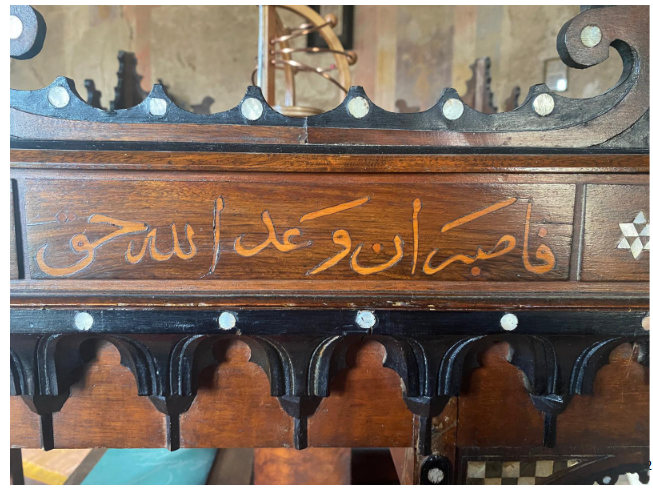 فاصبر ان وعد الله حق
2